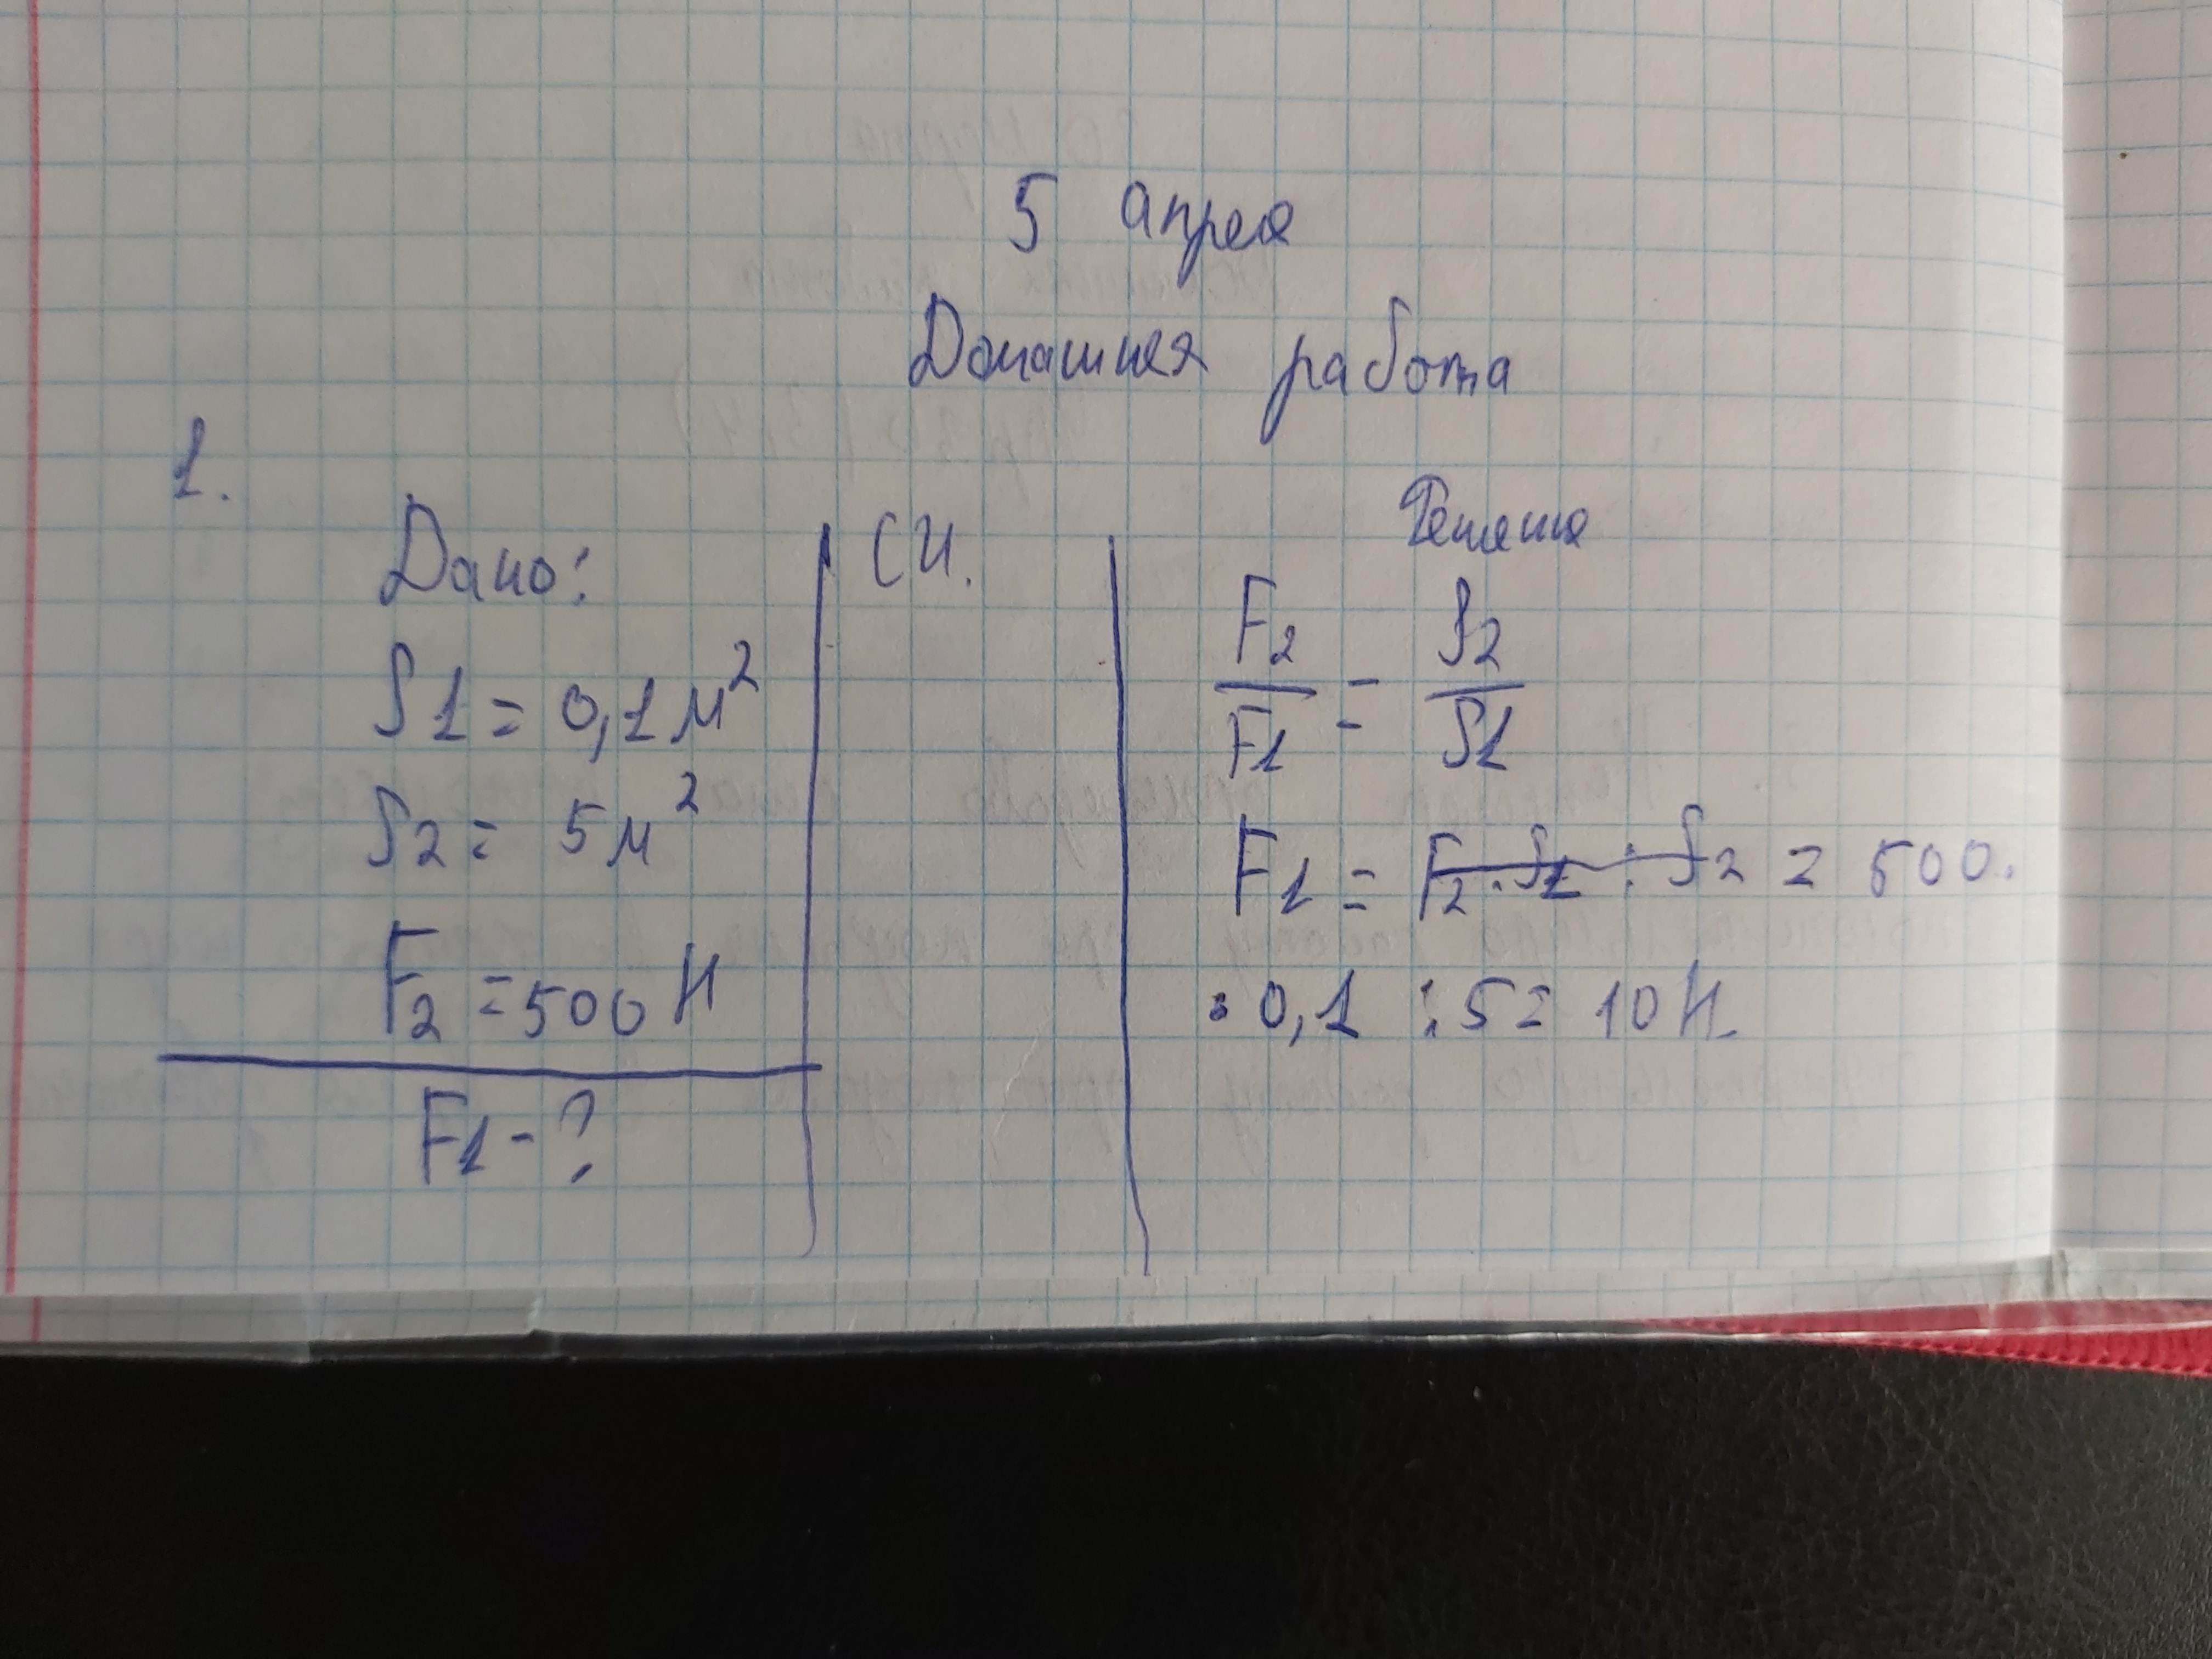 5 апреля
Домашняя работа
1.
Дано:
S1 = 0,1 м²
S2 = 5 м²
F2 = 500 Н
F1 - ?
СИ.
Решение
F2/F1 = S2/S1
F1 = F2 · S1 : S2 = 500 ·
· 0,1 : 5 = 10 Н.